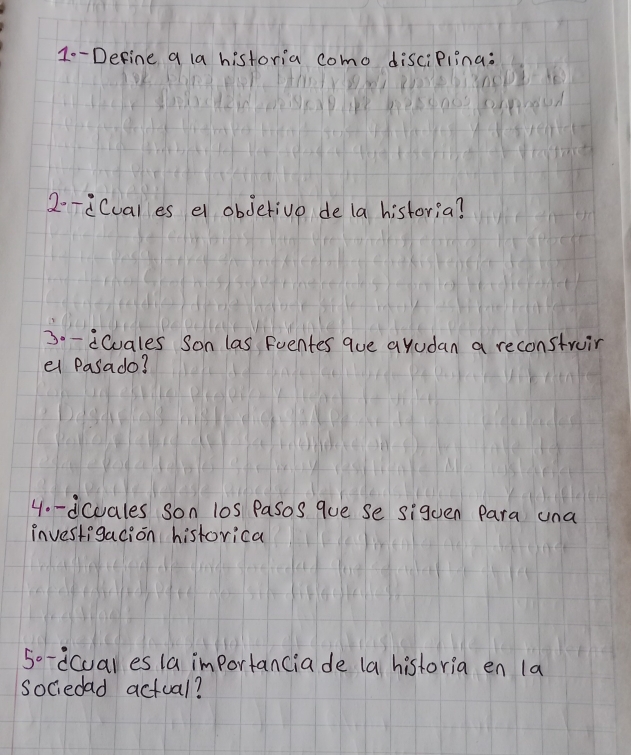 1.-Define a la historia como disciplina:
2.-¿Cual es el objetivo de la historia?
3.-¿Cuales son las fuentes que ayudan a reconstruir
el pasado?
4.-¿cuales son los pasos que se siguen para una
investigación historica
5.-¿cual es la importancia de la historia en la
sociedad actual?